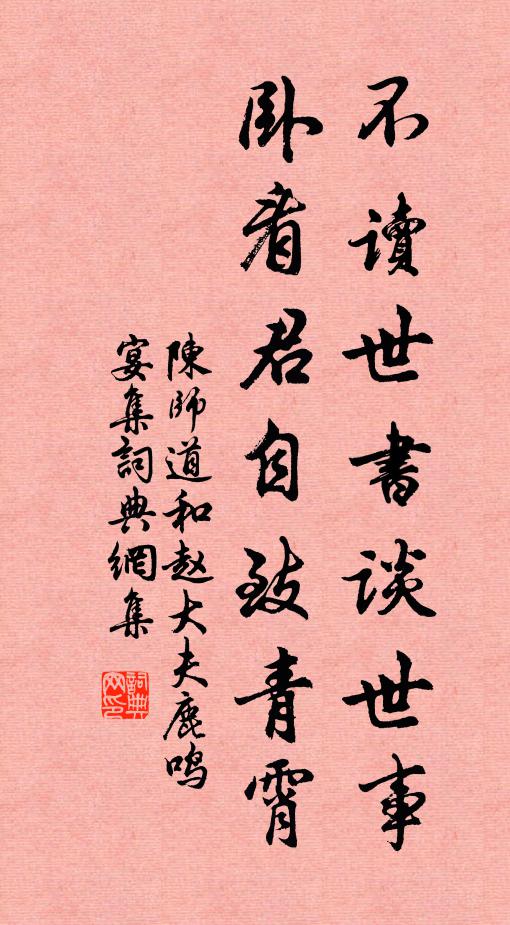 不讀世書談世事
臥看君自致青霄
陳師道和赵大夫鹿鸣
宴集詞典網集
詞典網印